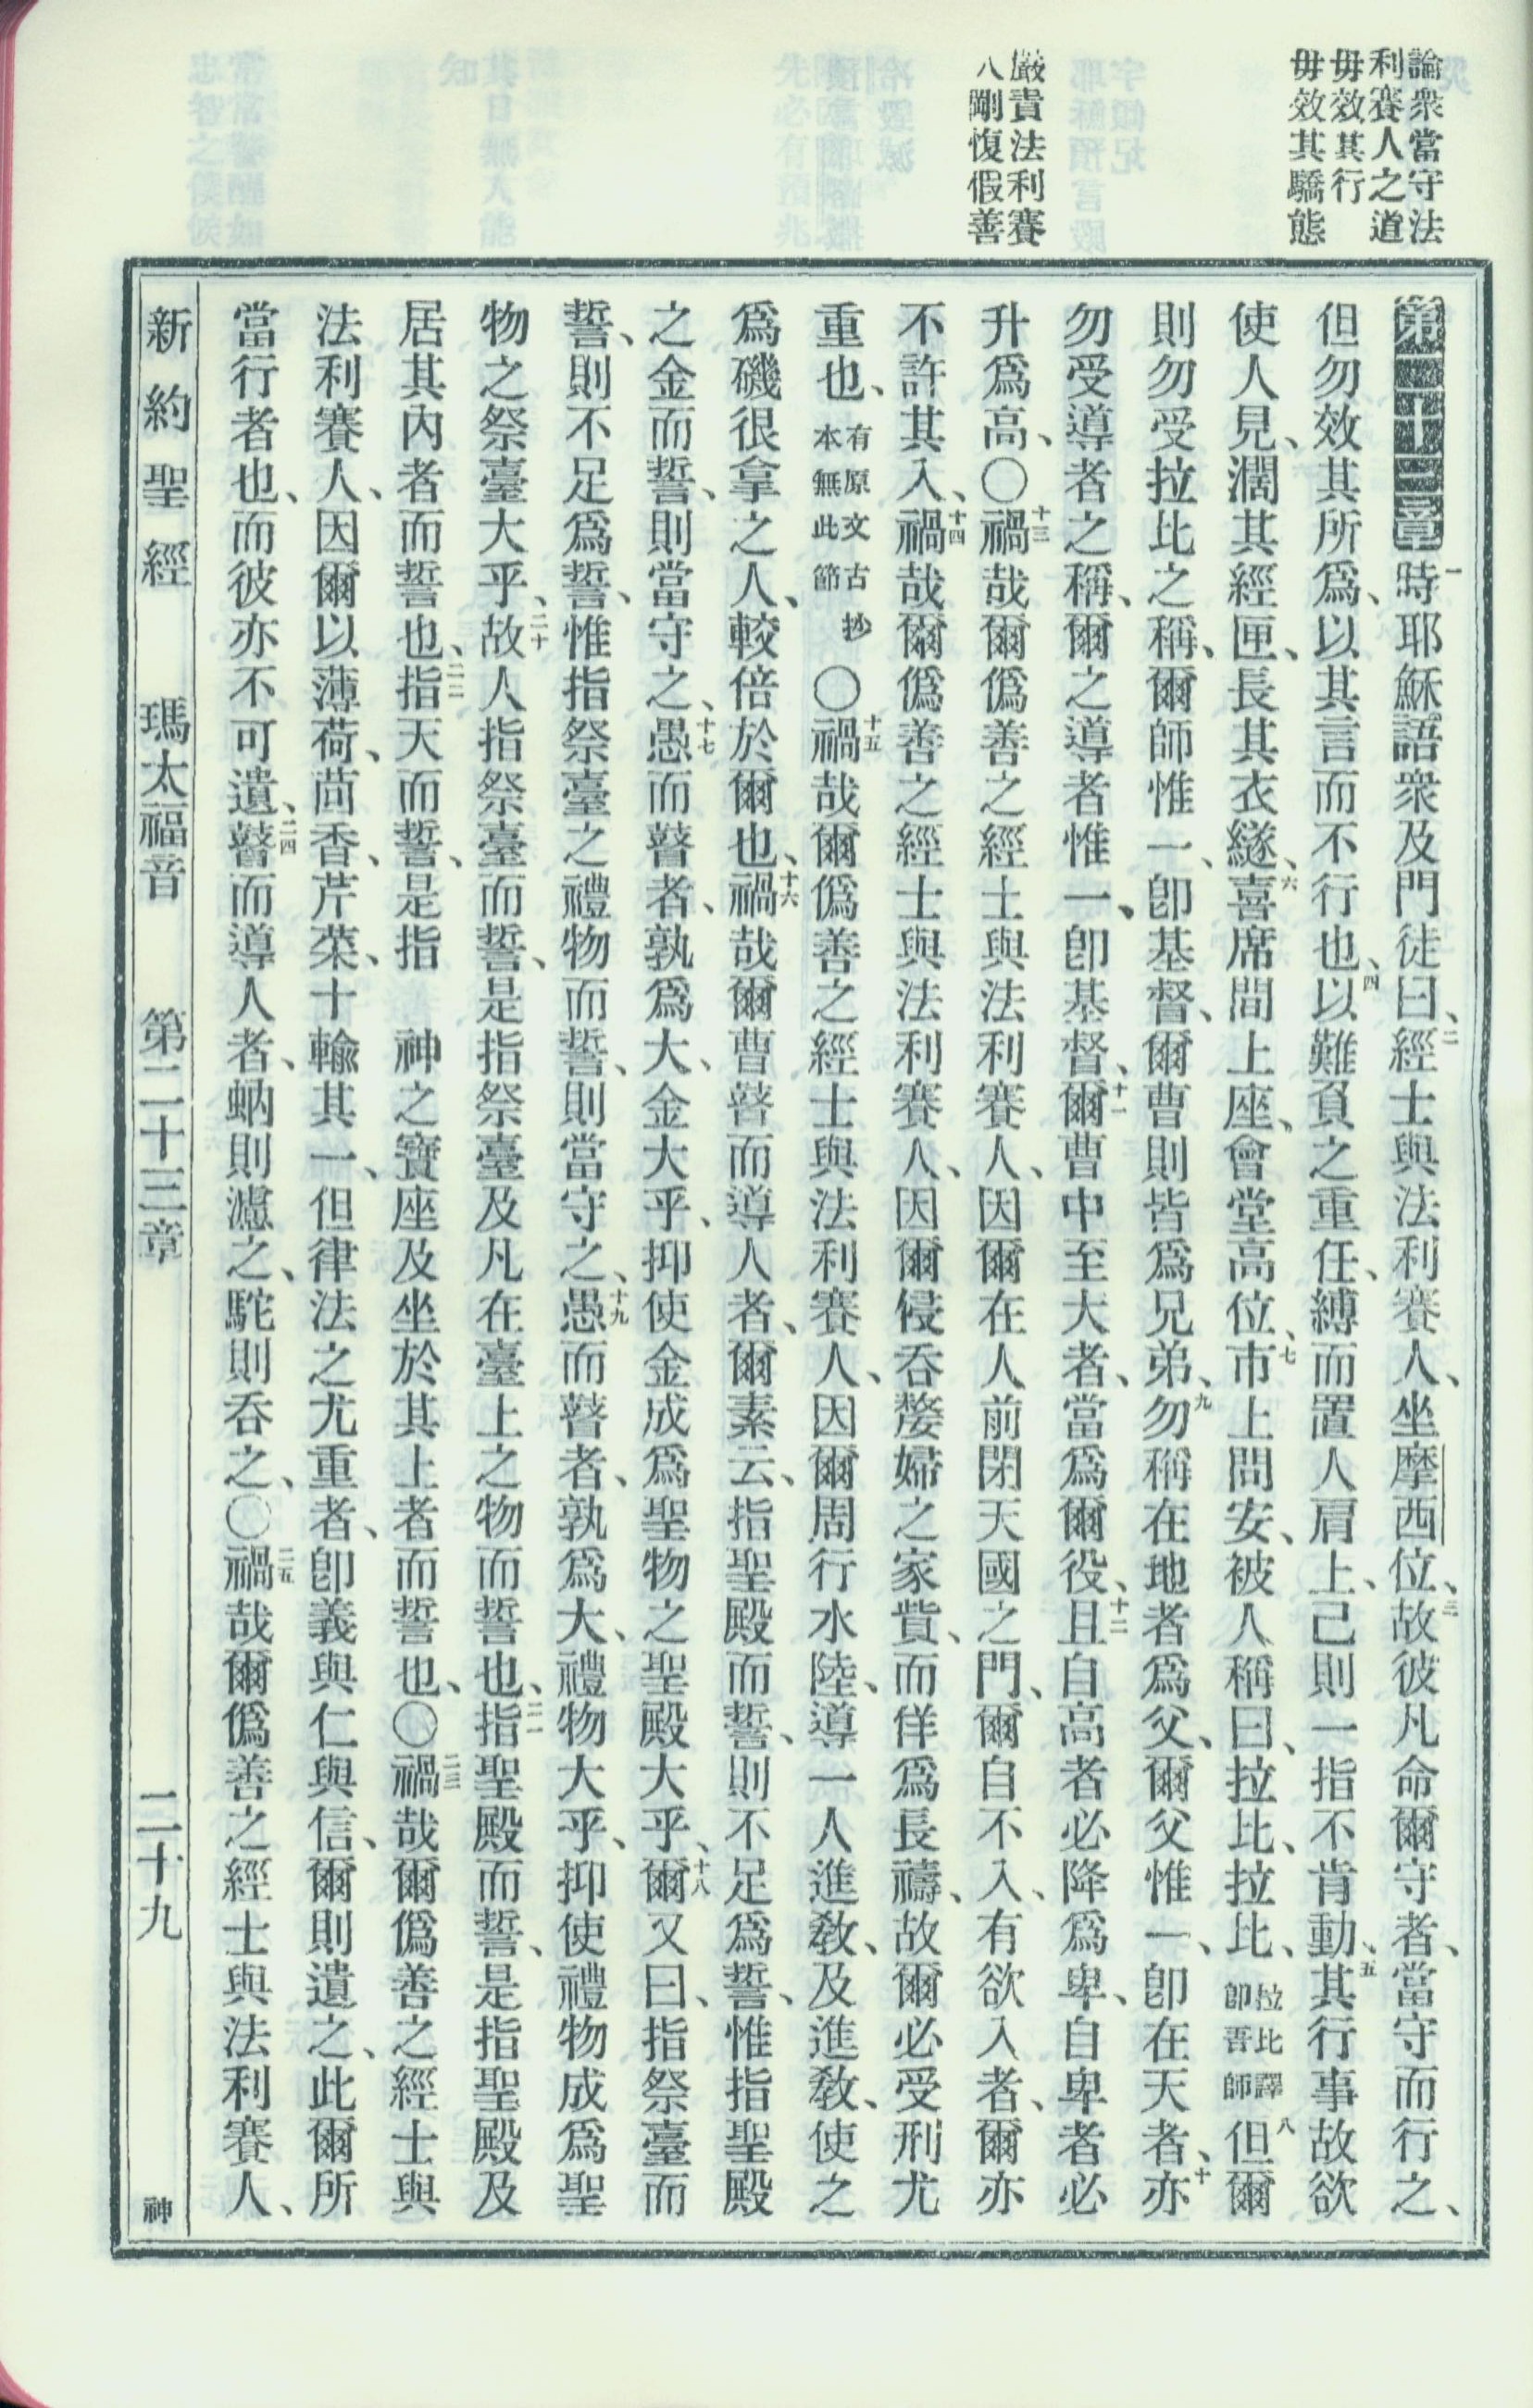 諭衆當守法
利賽人之道
毋效其行
毋效其驕態
嚴責法利賽
人剛愎假善
第二十三章一時耶穌語衆及門徒曰、二經士與法利賽人、坐摩西位、三故彼凡命爾守者、當守而行之、
但勿效其所爲、以其言而不行也、四以難負之重任、縛而置人肩上、己則一指不肯動、五其行事故欲
使人見、濶其經匣、長其衣繸、六喜席間上座、會堂高位、七市上問安、被人稱曰、拉比、拉比、拉比譯卽吾師八但爾
則勿受拉比之稱、爾師惟一、卽基督、爾曹則皆爲兄弟、九勿稱在地者爲父、爾父惟一、卽在天者、十亦
勿受導者之稱、爾之導者惟一、卽基督、十一爾曹中至大者、當爲爾役、十二且自高者必降爲卑、自卑者必
升爲高、〇十三禍哉爾僞善之經士與法利賽人、因爾在人前閉天國之門、爾自不入、有欲入者、爾亦
不許其入、十四禍哉爾僞善之經士與法利賽人、因爾侵吞嫠婦之家貲、而佯爲長禱、故爾必受刑尤
重也、有原文古抄本無此節〇十五禍哉爾僞善之經士與法利賽人、因爾周行水陸、導一人進教、及進教、使之
爲磯很拿之人、較倍於爾也、十六禍哉爾曹瞽而導人者、爾素云、指聖殿而誓、則不足爲誓、惟指聖殿
之金而誓、則當守之、十七愚而瞽者、孰爲大、金大乎、抑使金成爲聖物之聖殿大乎、十八爾又曰、指祭臺而
誓、則不足爲誓、惟指祭臺之禮物而誓、則當守之、十九愚而瞽者、孰爲大、禮物大乎、抑使禮物成爲聖
物之祭臺大乎、二十故人指祭臺而誓、是指祭臺及凡在臺上之物而誓也、二一指聖殿而誓、是指聖殿及
居其內者而誓也、二二指天而誓、是指　神之寶座及坐於其上者而誓也、〇二三禍哉爾僞善之經士與
法利賽人、因爾以薄荷、茴香、芹菜、十輸其一、但律法之尤重者、卽義與仁與信、爾則遺之、此爾所
當行者也、而彼亦不可遺、二四瞽而導人者、蚋則濾之、駝則吞之、〇二五禍哉爾僞善之經士與法利賽人、
新約聖經　瑪太福音　第二十三章　二十九　神